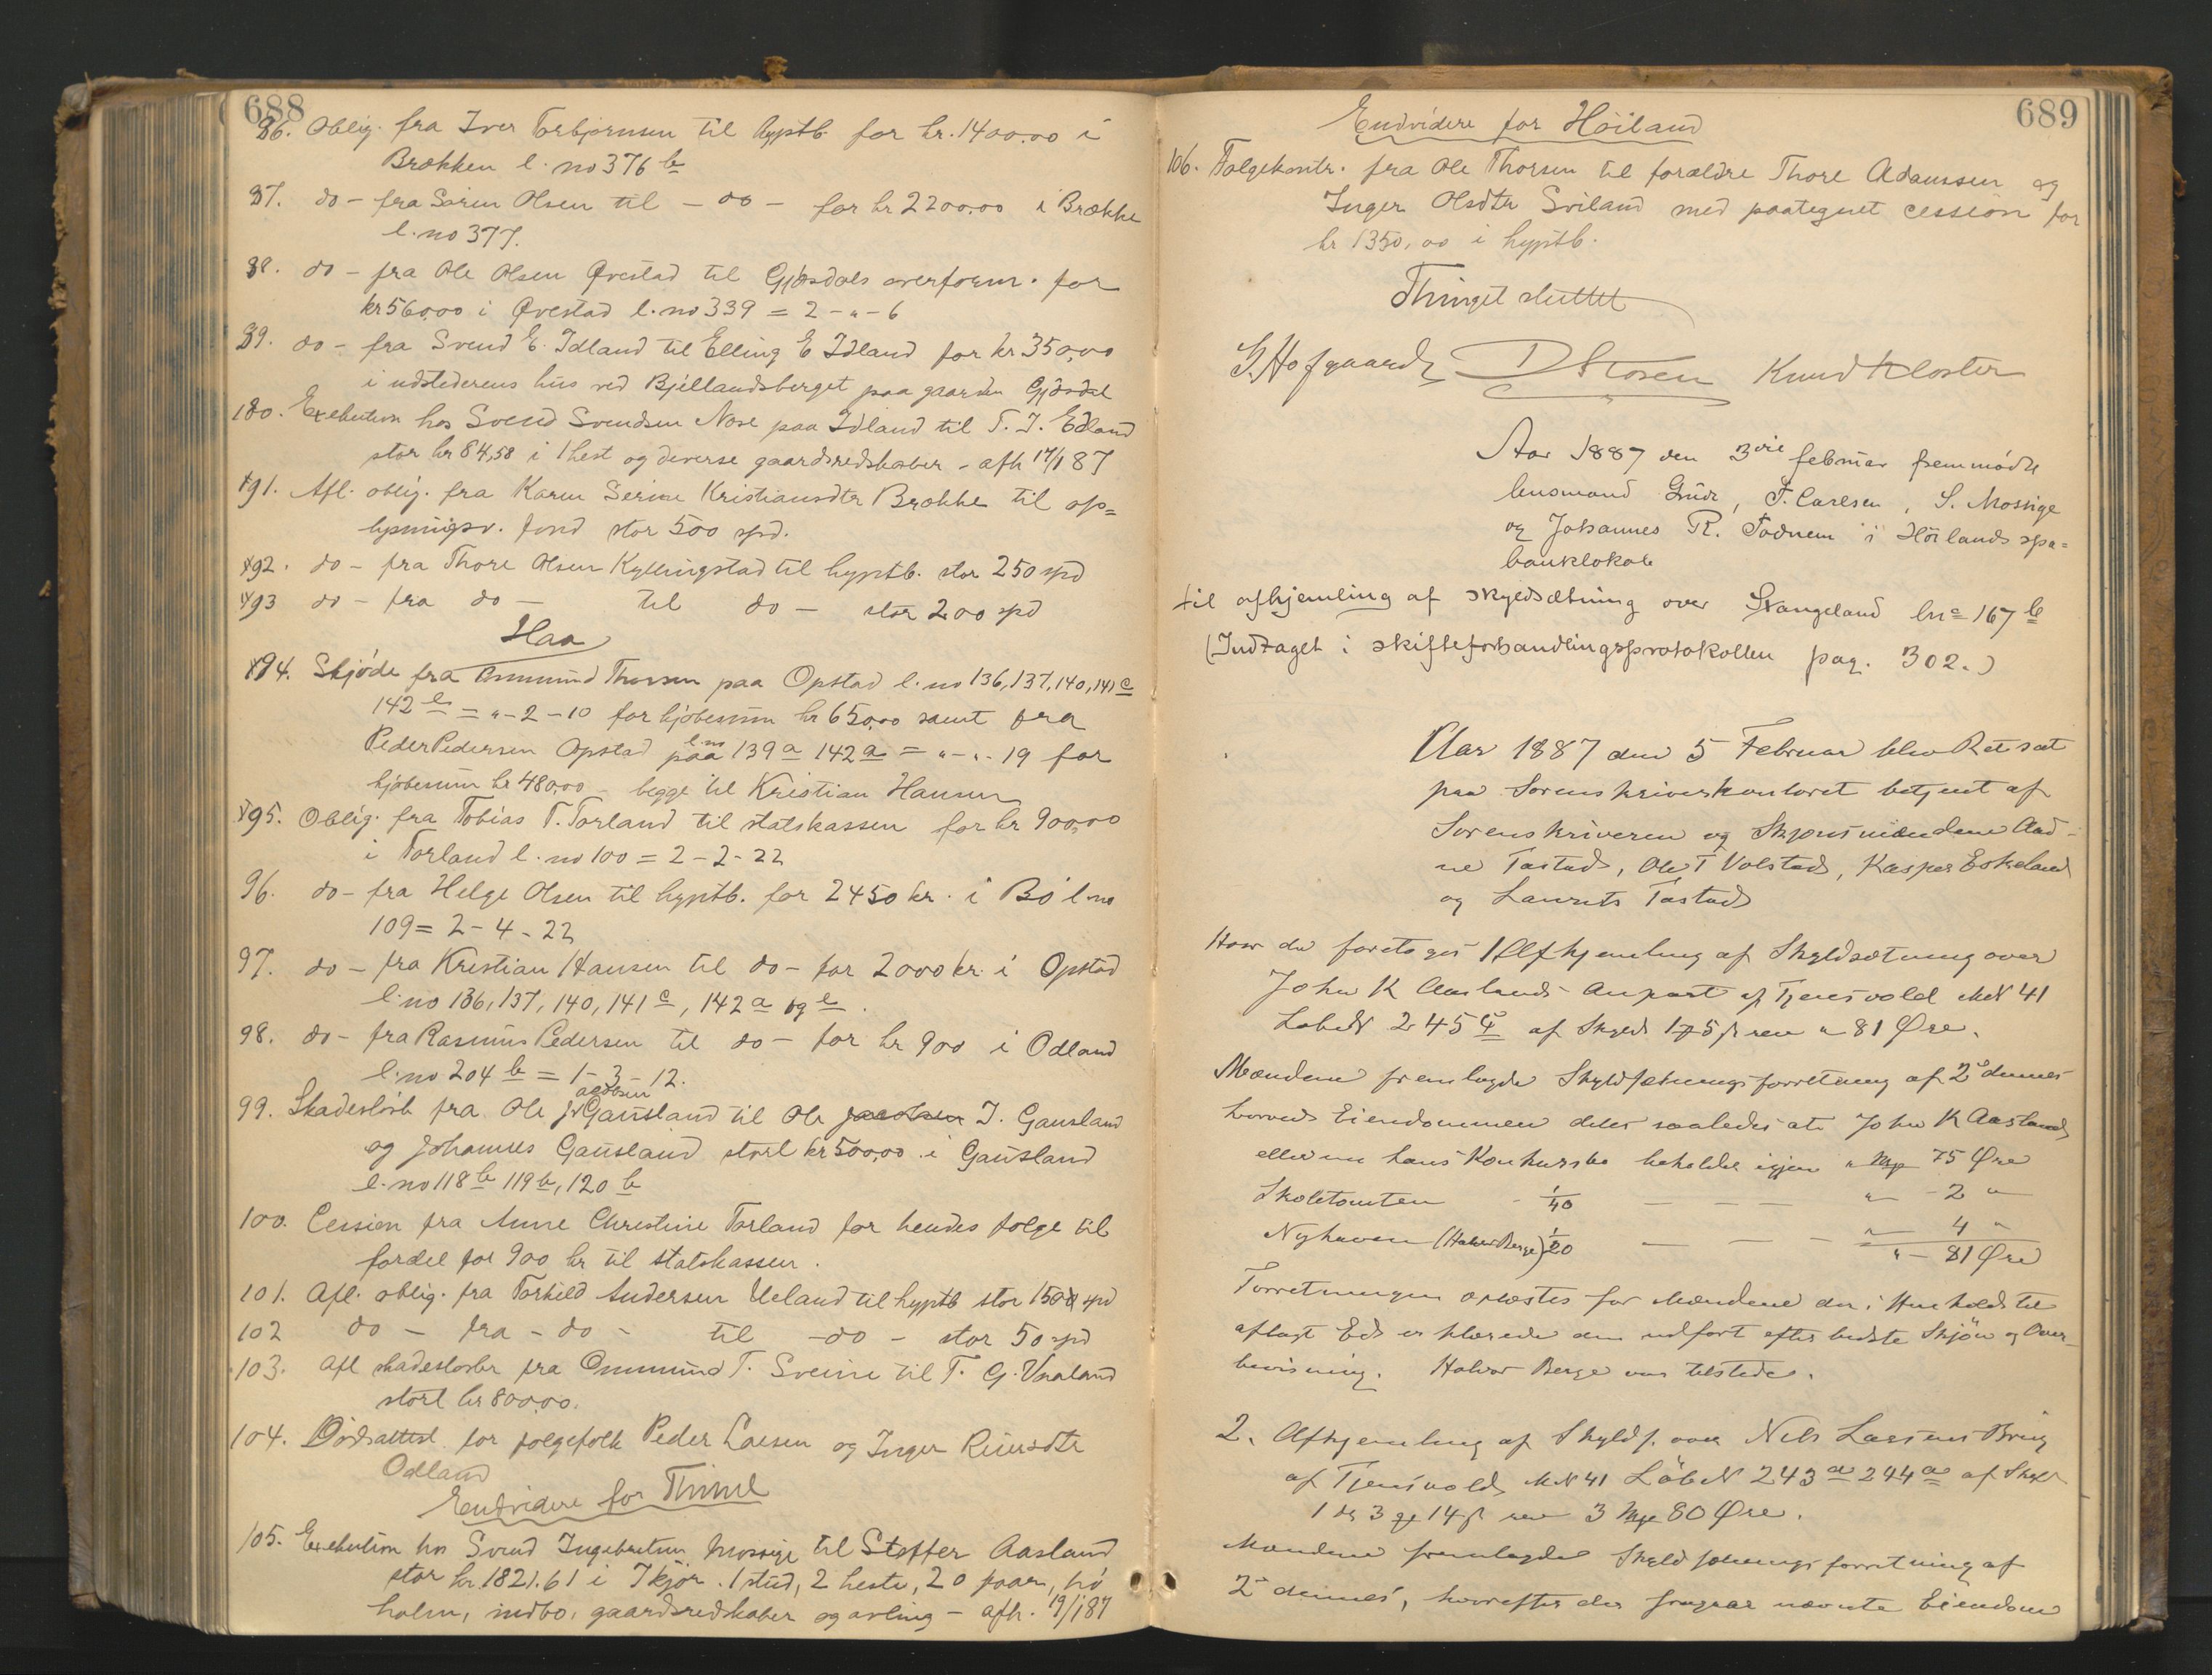 688
86. Oblig. fra Iver Torbjørnsen til hyptb. for kr. 1400.00 i
Brækken l. no 376 b
87. do - fra Søren Olsen til - do - for kr 2200.00 i Brække
l. no 377.
88. do - fra Ole Olsen Øvestad til Gjæsdals overform. for
kr 560,00 i Øvestad l. no 339 = 2 - " - 6
89. do - fra Svend E. Idland til Elling E Idland for kr 350,00
i udstederens hus ved Bjellandsberget paa gaarden Gjæsdal
180. Exekution hos Svend Svendsen Nose paa Idland til T. T. Edland
stor kr 84,58 i 1 hest og diverse gaardsredskaber - afh 17/1 87
191. Afl. oblig. fra Karen Serine Kristiansdtr Brække til op=
lysningsv. fond stor 500 spd.
192. do - fra Thore Olsen Kyllingstad til hyptb. stor 250 spd
193 do - fra do - til do - stor 200 spd
Haa
194. Skjøde fra Ommund Thorsen paa Opstad l. no 136, 137, 140, 141 c
142 e = " - 2 - 10 for kjøbesum kr 650,00 samt fra
Peder Pedersen Opstad paa l. no 139 a 142 a = " - " - 19 for
kjøbesum kr 480,00 - begge til Kristian Hansen
195. Oblig. fra Tobias T. Torland til statskassen for kr 900,00
i Torland l. no 100 = 2 - 2 - 22
96. do - fra Helge Olsen til hyptb. for 2450 kr. i Bø l. no
109 = 2 - 4 - 22
97. do - fra Kristian Hansen til do - for 2000 kr. i Opstad
l. no 136, 137, 140, 141 c, 142 a og e.
98. do - fra Rasmus Pedersen til do - for kr 900 i Odland
l. no 204 b = 1 - 3 - 12.
99. Skadesløsb fra Ole Jacobsen Gausland til Ole Jacobsen J. Gausland
og Johannes Gausland stort kr 500,00 i Gausland
l. no 118 b 119 b, 120 b
100. Cession fra Anne Christine Torland for hendes folge til
fordel for 900 kr til statskassen.
101. Afl. oblig. fra Torkild Andersen Ueland til hyptb stor 150 spd
102 do - fra - do - til - do - stor 50 spd
103. Afl skadesløsbr fra Ommund T. Sveine til T. G. Vaaland
stort kr 800,00.
104. Dødsattest for folgefolk Peder Larsen og Inger Riersdtr
Odland
Endvidere for Thime
105. Exekution hos Svend Ingebretsen Mossige til Steffer Aasland
stor kr. 1821.61 i 7 kjør. 1 stud, 2 heste, 20 faar, hø
halm, indbo, gaardsredskaber og avling - afh. 19/1 87
689
Endvidere for Høiland
106. Folgekontr. fra Ole Thorsen til forældre Thore Adamssen og
Inger Olsdtr Sviland med paategnet cession for
kr 1350,00 i hyptb.
Thinget sluttet
G. Hofgaard D Stosen Knud Kloster
Aar 1887 den 3die februar fremmødte
lensmand Gude, T. Carlsen, S. Mossige
og Johannes R. Todnem i Høilands spa=
banklokale
til afhjemling af skyldsætning over Stangeland lno 167 b
(Indtaget i skifteforhandlingsprotokollen pag. 302.)
Aar 1887 den 5 Februar blev Ret sat
paa Sorenskriverkontoret betjent af
Sorenskriveren og Skjønsmændene Aad-
ne Tastad, Ole T Volstad, Kasper Eskeland
og Laurits Tastad
Hvor da foretoges 1 Afhjemling af Skyldsætning over
John K Aaslands Anpart af Tjensvold MN 41
LøbeN 245 c af Skyld 1 ort 5 s rev " 81 Øre.
Mændene fremlagde Skyldsætningsforretning af 2 dennes
hvorved Eiendommen deles saaledes at John K Aasland
eller nu hans Konkursbo beholder igjen " Mrk 75 Øre
Skoletomten - 1/40 - - - " - 2 "
Nyhaven (Halvor Berge) 1/20 - - - " 4 "
" - 81 Øre
Forretningen oplæstes for Mændene der i Henhold til
aflagt Ed erklærede den udført efter bedste Skjøn og Over-
bevisning. Halvor Berge var tilstede.
2. Afhjemling af Skylds. over Nels Larsens Brug
af Tjensvold MN 41 LøbeN 243 a 244 a af Skyld
1 dr 3 ort 14 s rev 3 Mrk 80 Øre.
Mændene fremlagde Skyldsætningsforretning af
2 dennes, hvorefter der fragaar nævnte Eiendom